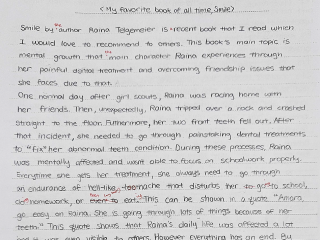 (My favorite book of all time, Smile)
Smile by the author Raina Telgemeier is recent book that I read which
I would love to recommend to others. This book's main topic is
mental growth that the main character Raina experiences through
her painful dental treatment and overcoming friendship issues that
she faces due to that.
One normal day after girl scouts, Raina was racing home with
her friends. Then, unexpectedly, Raina tripped over a rock and crashed
straight to the floor. Futhermore, her two front teeth fell out. After
that incident, she needed to go through painstaking dental treatments
to "fix" her abnormal teeth condition. During these processes, Raina
was mentally affected and wasn't able to focus on schoolwork properly.
Everytime she gets her treatment, she always need to go through
an endurance of hell-like toothache that disturbs her to go to school,
do homework, or even to eat. This can be shown in a quote "Amara,
go easy on Raina. She is going through lots of things because of her
teeth." This quote shows that Raina's daily life was affected a lot
visible to others. However everything has an end. By